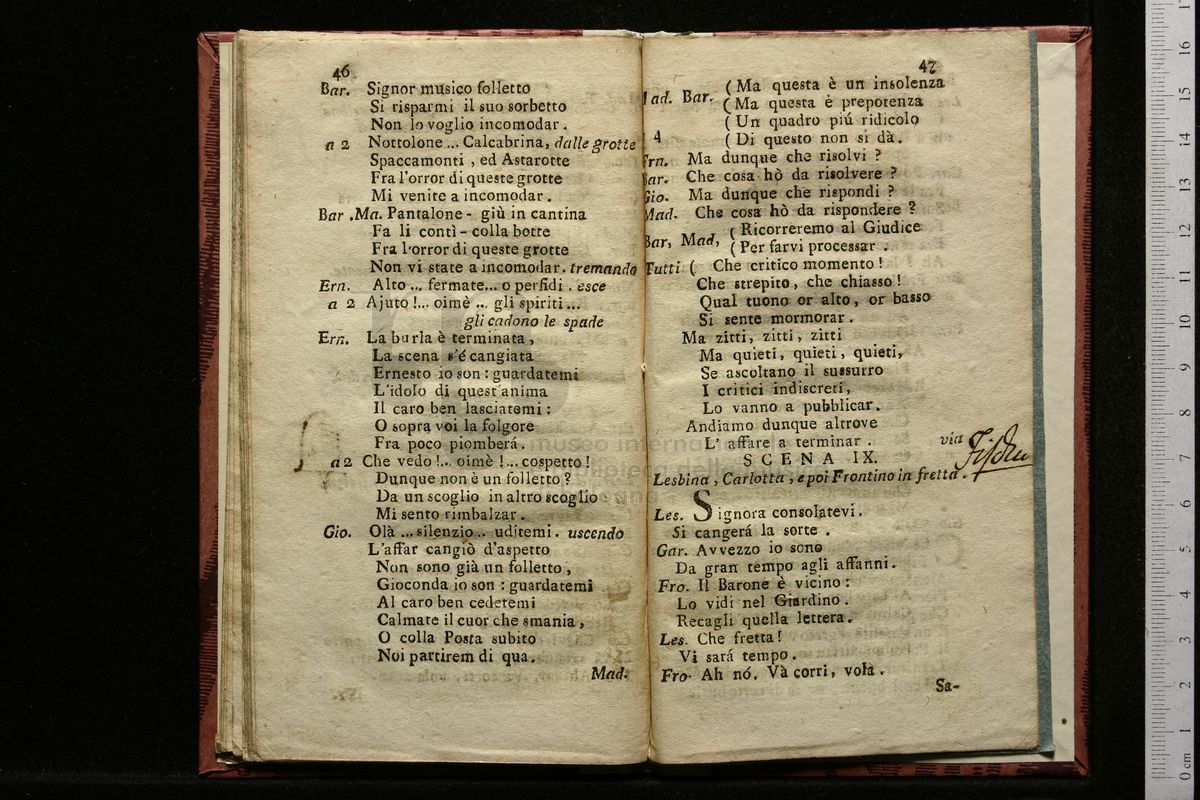 46
Bar. Signor musico folletto
Si risparmi il suo sorbetto
Non lo voglio incomodar.
a 2 Nottolone ... Calcabrina, dalle grotte
Spaccamonti, ed Astarotte
Fra l'orror di queste grotte
Mi venite a incomodar.
Bar .Ma. Pantalone - giù in cantina
Fa li contì - colla botte
Fra l'orror di queste grotte
Non vi state a incomodar. tremando
Ern. Alto ... fermate... o perfidi . esce
a 2 Ajuto !... oimè ... gli spiriti ...
gli cadono le spade
Ern. La burla è terminata,
La scena s'é cangiata
Ernesto io son : guardatemi
L'idolo di quest'anima
Il caro ben lasciatemi :
O sopra voi la folgore
Fra poco piomberá.
a 2 Che vedo !.. oimè ! ... cospetto !
Dunque non è un folletto ?
Da un scoglio in altro scoglio
Mi sento rimbalzar.
Gio. Olà ... silenzio .. uditemi. uscendo
L'affar cangiò d'aspetto
Non sono già un folletto,
Gioconda io son : guardatemi
Al caro ben cedetemi
Calmate il cuor che smania,
O colla Posta subito
Noi partirem di qua.
Mad.
47
Mad. Bar. ( Ma questa è un insolenza
( Ma questa è prepotenza
( Un quadro piú ridicolo
4 ( Di questo non si dà.
Ern. Ma dunque che risolvi ?
Bar. Che cosa hò da risolvere ?
Gio. Ma dunque che rispondi ?
Mad. Che cosa hò da rispondere ?
Bar, Mad, ( Ricorreremo al Giudice
( Per farvi processar .
Tutti ( Che critico momento !
Che strepito, che chiasso !
Qual tuono or alto, or basso
Si sente mormorar.
Ma zitti, zitti, zitti
Ma quieti, quieti, quieti,
Se ascoltano il sussurro
I critici indiscreti,
Lo vanno a pubblicar.
Andiamo dunque altrove
L' affare a terminar. via
SCENA IX.
Lesbina, Carlotta, e poi Frontino in fretta.
Les. Signora consolatevi.
Si cangerá la sorte .
Gar. Avvezzo io sono
Da gran tempo agli affanni.
Fro. Il Barone è vicino :
Lo vidi nel Giardino.
Recagli quella lettera.
Les. Che fretta !
Vi sará tempo.
Fro. Ah nó. Và corri, vola.
Sa-